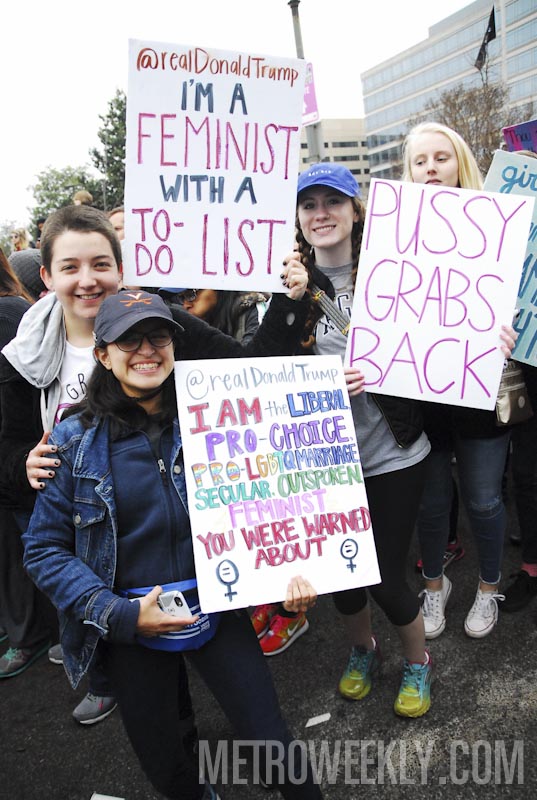 @realDonaldTrump
I'M A
FEMINIST
WITH A
TO-
DO LIST
PUSSY
GRABS
BACK
@realDonaldTrump
I AM the LIBERAL
PRO-CHOICE,
PRO-LGBTQ MARRIAGE
SECULAR, OUTSPOKEN
FEMINIST
YOU WERE WARNED
ABOUT
METROWEEKLY.COM